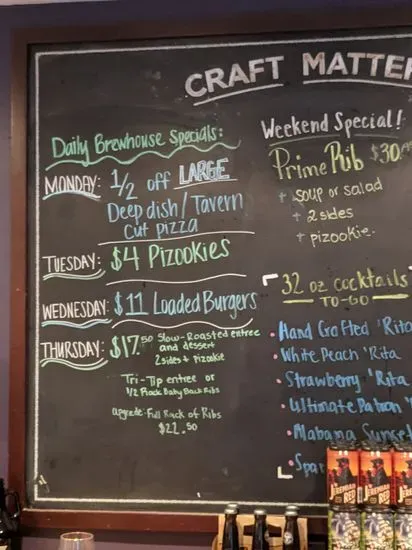 CRAFT MATTER
Daily Brewhouse Specials:
MONDAY: 1/2 off LARGE
Deep dish/Tavern
Cut pizza
TUESDAY: $4 Pizookies
WEDNESDAY: $11 Loaded Burgers
THURSDAY: $17.50 Slow-Roasted entree
and dessert
2 sides + pizookie
Tri-Tip entree or
1/2 Rack Baby Back Ribs
upgrade-Full Rack of Ribs
$22.50
Weekend Special!
Prime Rib $30
+ soup or salad
+ 2 sides
+ pizookie
32 oz cocktails
TO-GO
• Hand Crafted 'Rita
• White Peach 'Rita
• Strawberry 'Rita
• Ultimate Patron 'R
• Mabama Sunse
• Spar
JEREMIAH
RED
JEREMIAH
RED